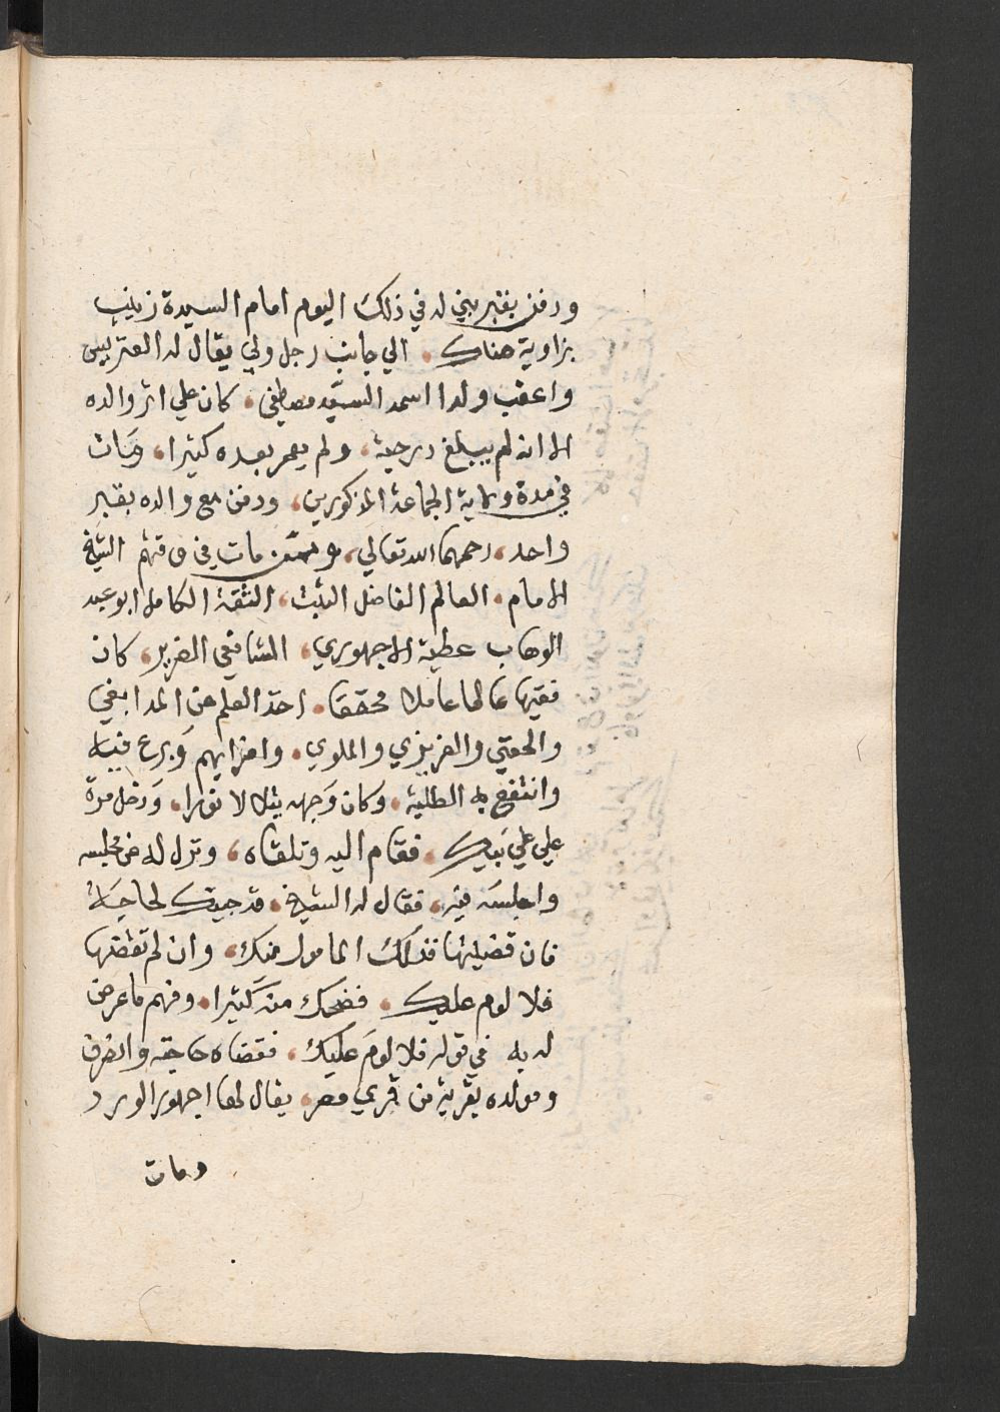 ودفن بقبر بني له في ذلك اليوم امام السيدة زينب
بزاوية هناك، الي جانب رجل ولي يقال له العتريس
واعقب ولدا اسمه السيد مصطفي، كان علي اثر والده
الا انه لم يبلغ درجته، ولم يعمر بعده كثيرا، ومات
في مدة ولاية الجماعة المذكورين، ودفن مع والده بقبر
واحد، رحمهما الله تعالي، وممن مات في وقتهم الشيخ
الامام، العالم الفاضل الثبت، الثقة الكامل ابو عبد
الوهاب عطية الاجهوري، الشافعي الضرير، كان
فقيها عالما عاملا محققا، اخذ العلم عن المدابغي
والحفني والعزيزي والملوي، واضرابهم وبرع فيه
وانتفع به الطلبة، وكان وجهه يتلالا نورا، ودخل مرة
علي علي بيك، فقام اليه وتلقاه، ونزل له عن مجلسه
واجلسه فيه، فقال له الشيخ، قد جيتك لحاجة
فان قضيتها فذلك المامول منك، وان لم تقضها
فلا لوم عليك، فضحك منه كثيرا، وفهم ما عرض
له به في قوله فلا لوم عليك، فقضاه حاجته وانصرف
ومولده بقرية من قري مصر، يقال لها اجهور الورد
ومات